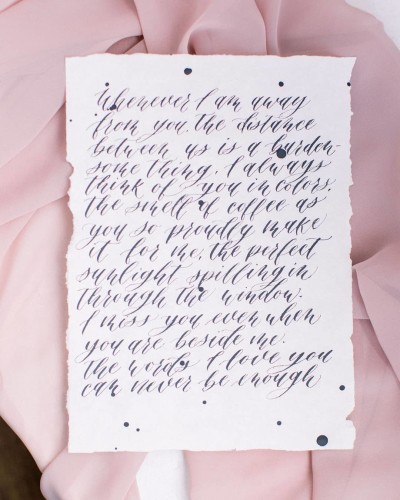 Whenever I am away
from you, the distance
between us is a burden-
some thing. I always
think of you in colors.
the smell of coffee as
you so proudly make
it for me, the perfect
sunlight spilling in
through the window.
I miss you even when
you are beside me.
the words I love you
can never be enough